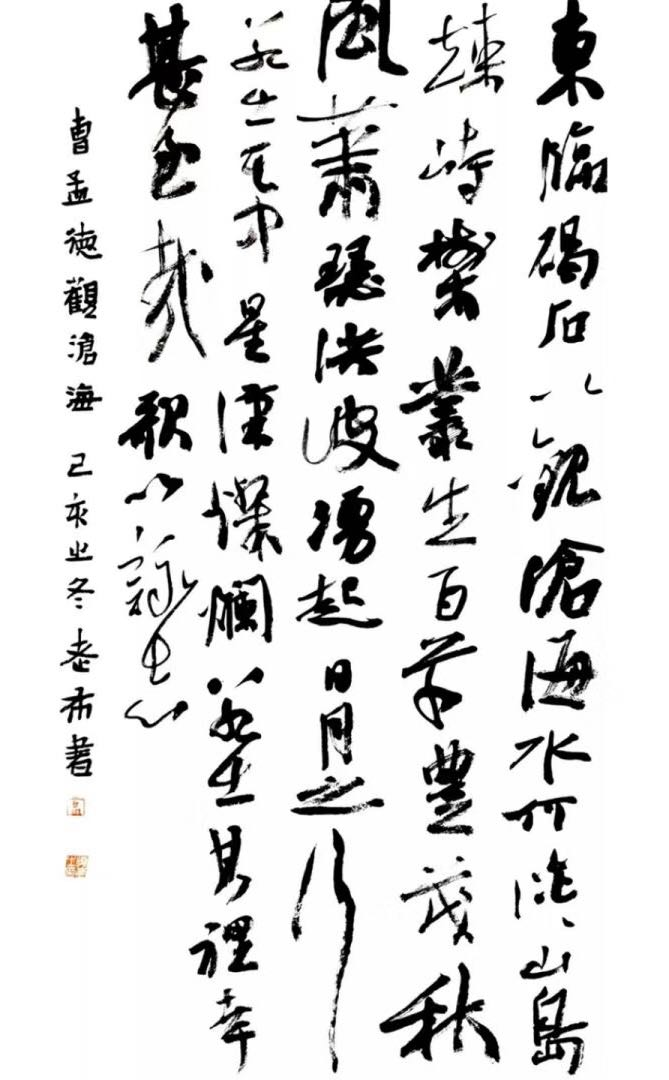 東臨碣石以觀滄海水何澹〻山島
竦峙樹木叢生百草豐茂秋
風蕭瑟洪波湧起日月之行
若出其中星漢燦爛若出其裡幸
甚至哉歌以詠志
曹孟德觀滄海 己亥之冬老布書